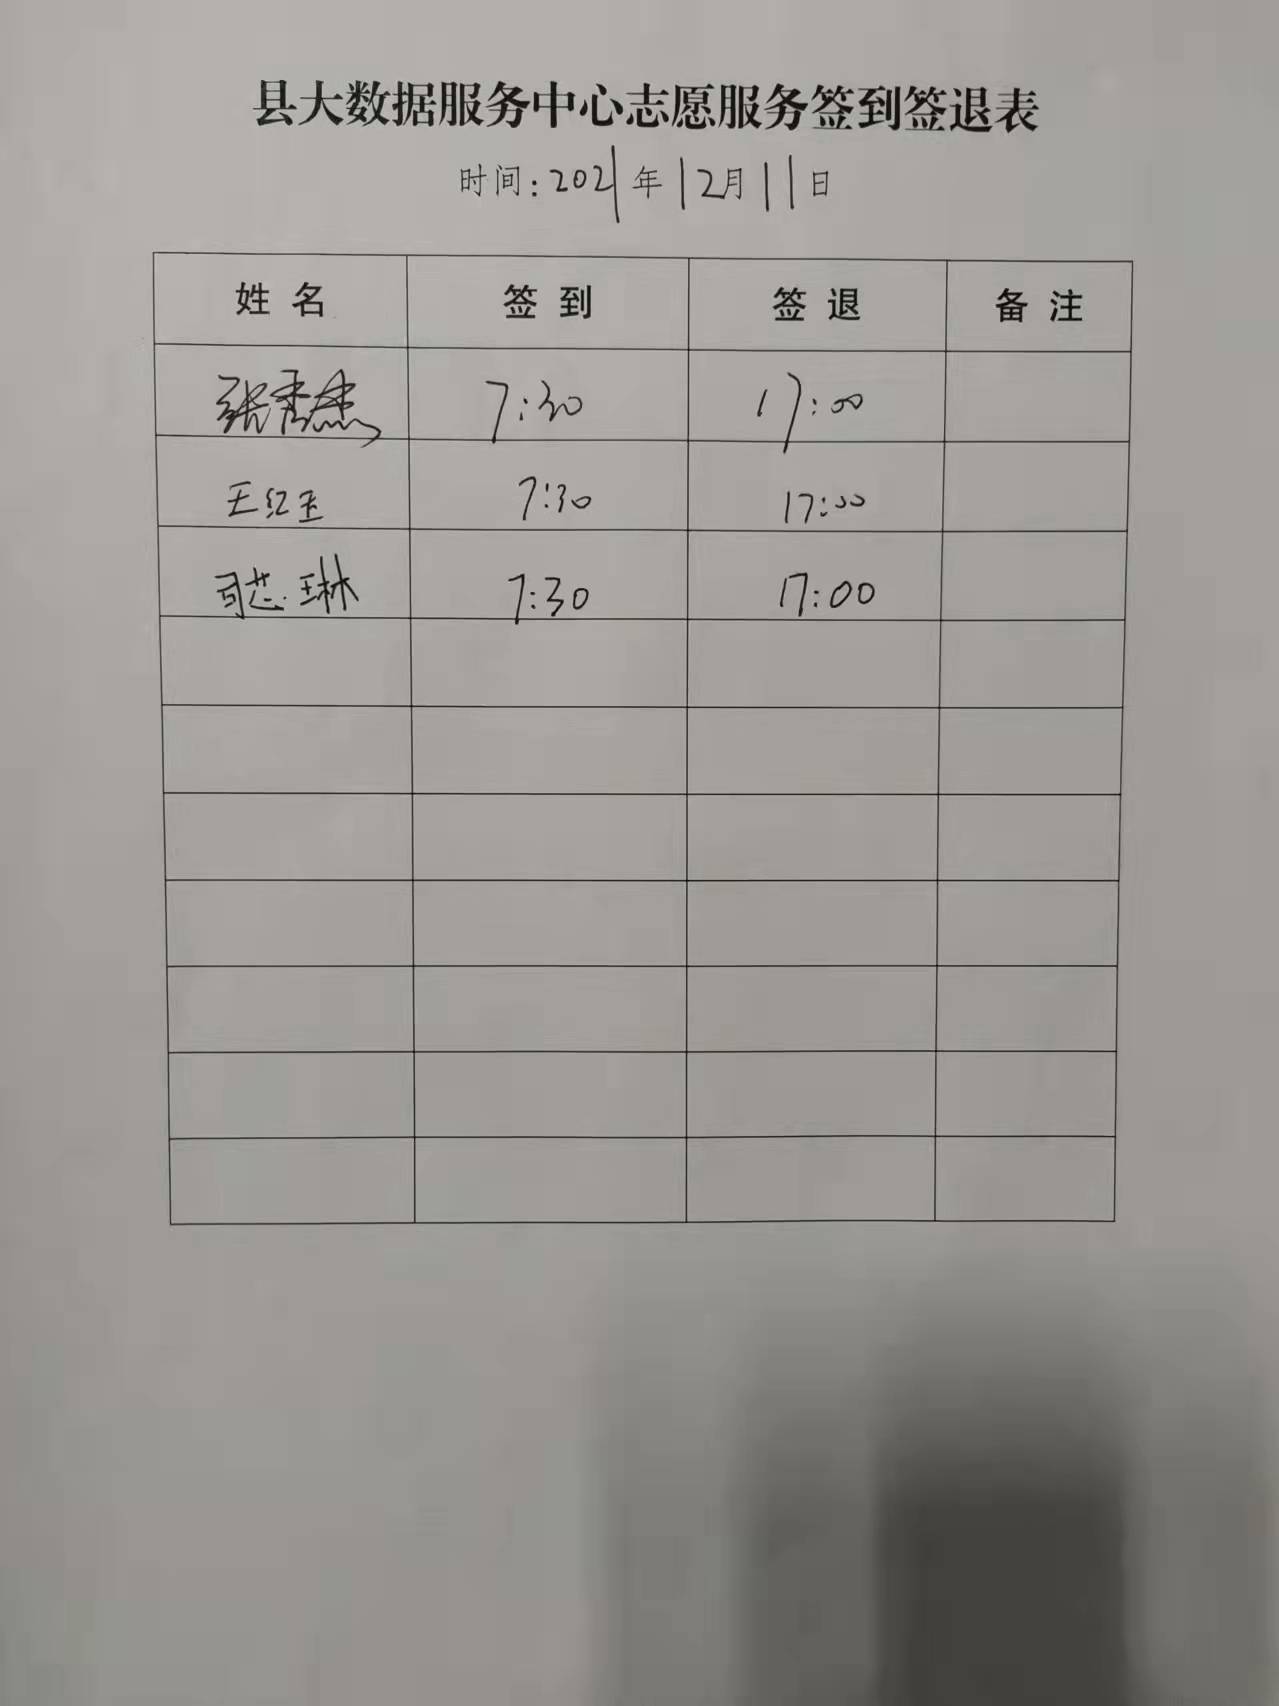 县大数据服务中心志愿服务签到签退表
时间:2021年12月11日
姓名 签到 签退 备注
张秀杰 7:30 17:00
王红玉 7:30 17:00
司芯琳 7:30 17:00